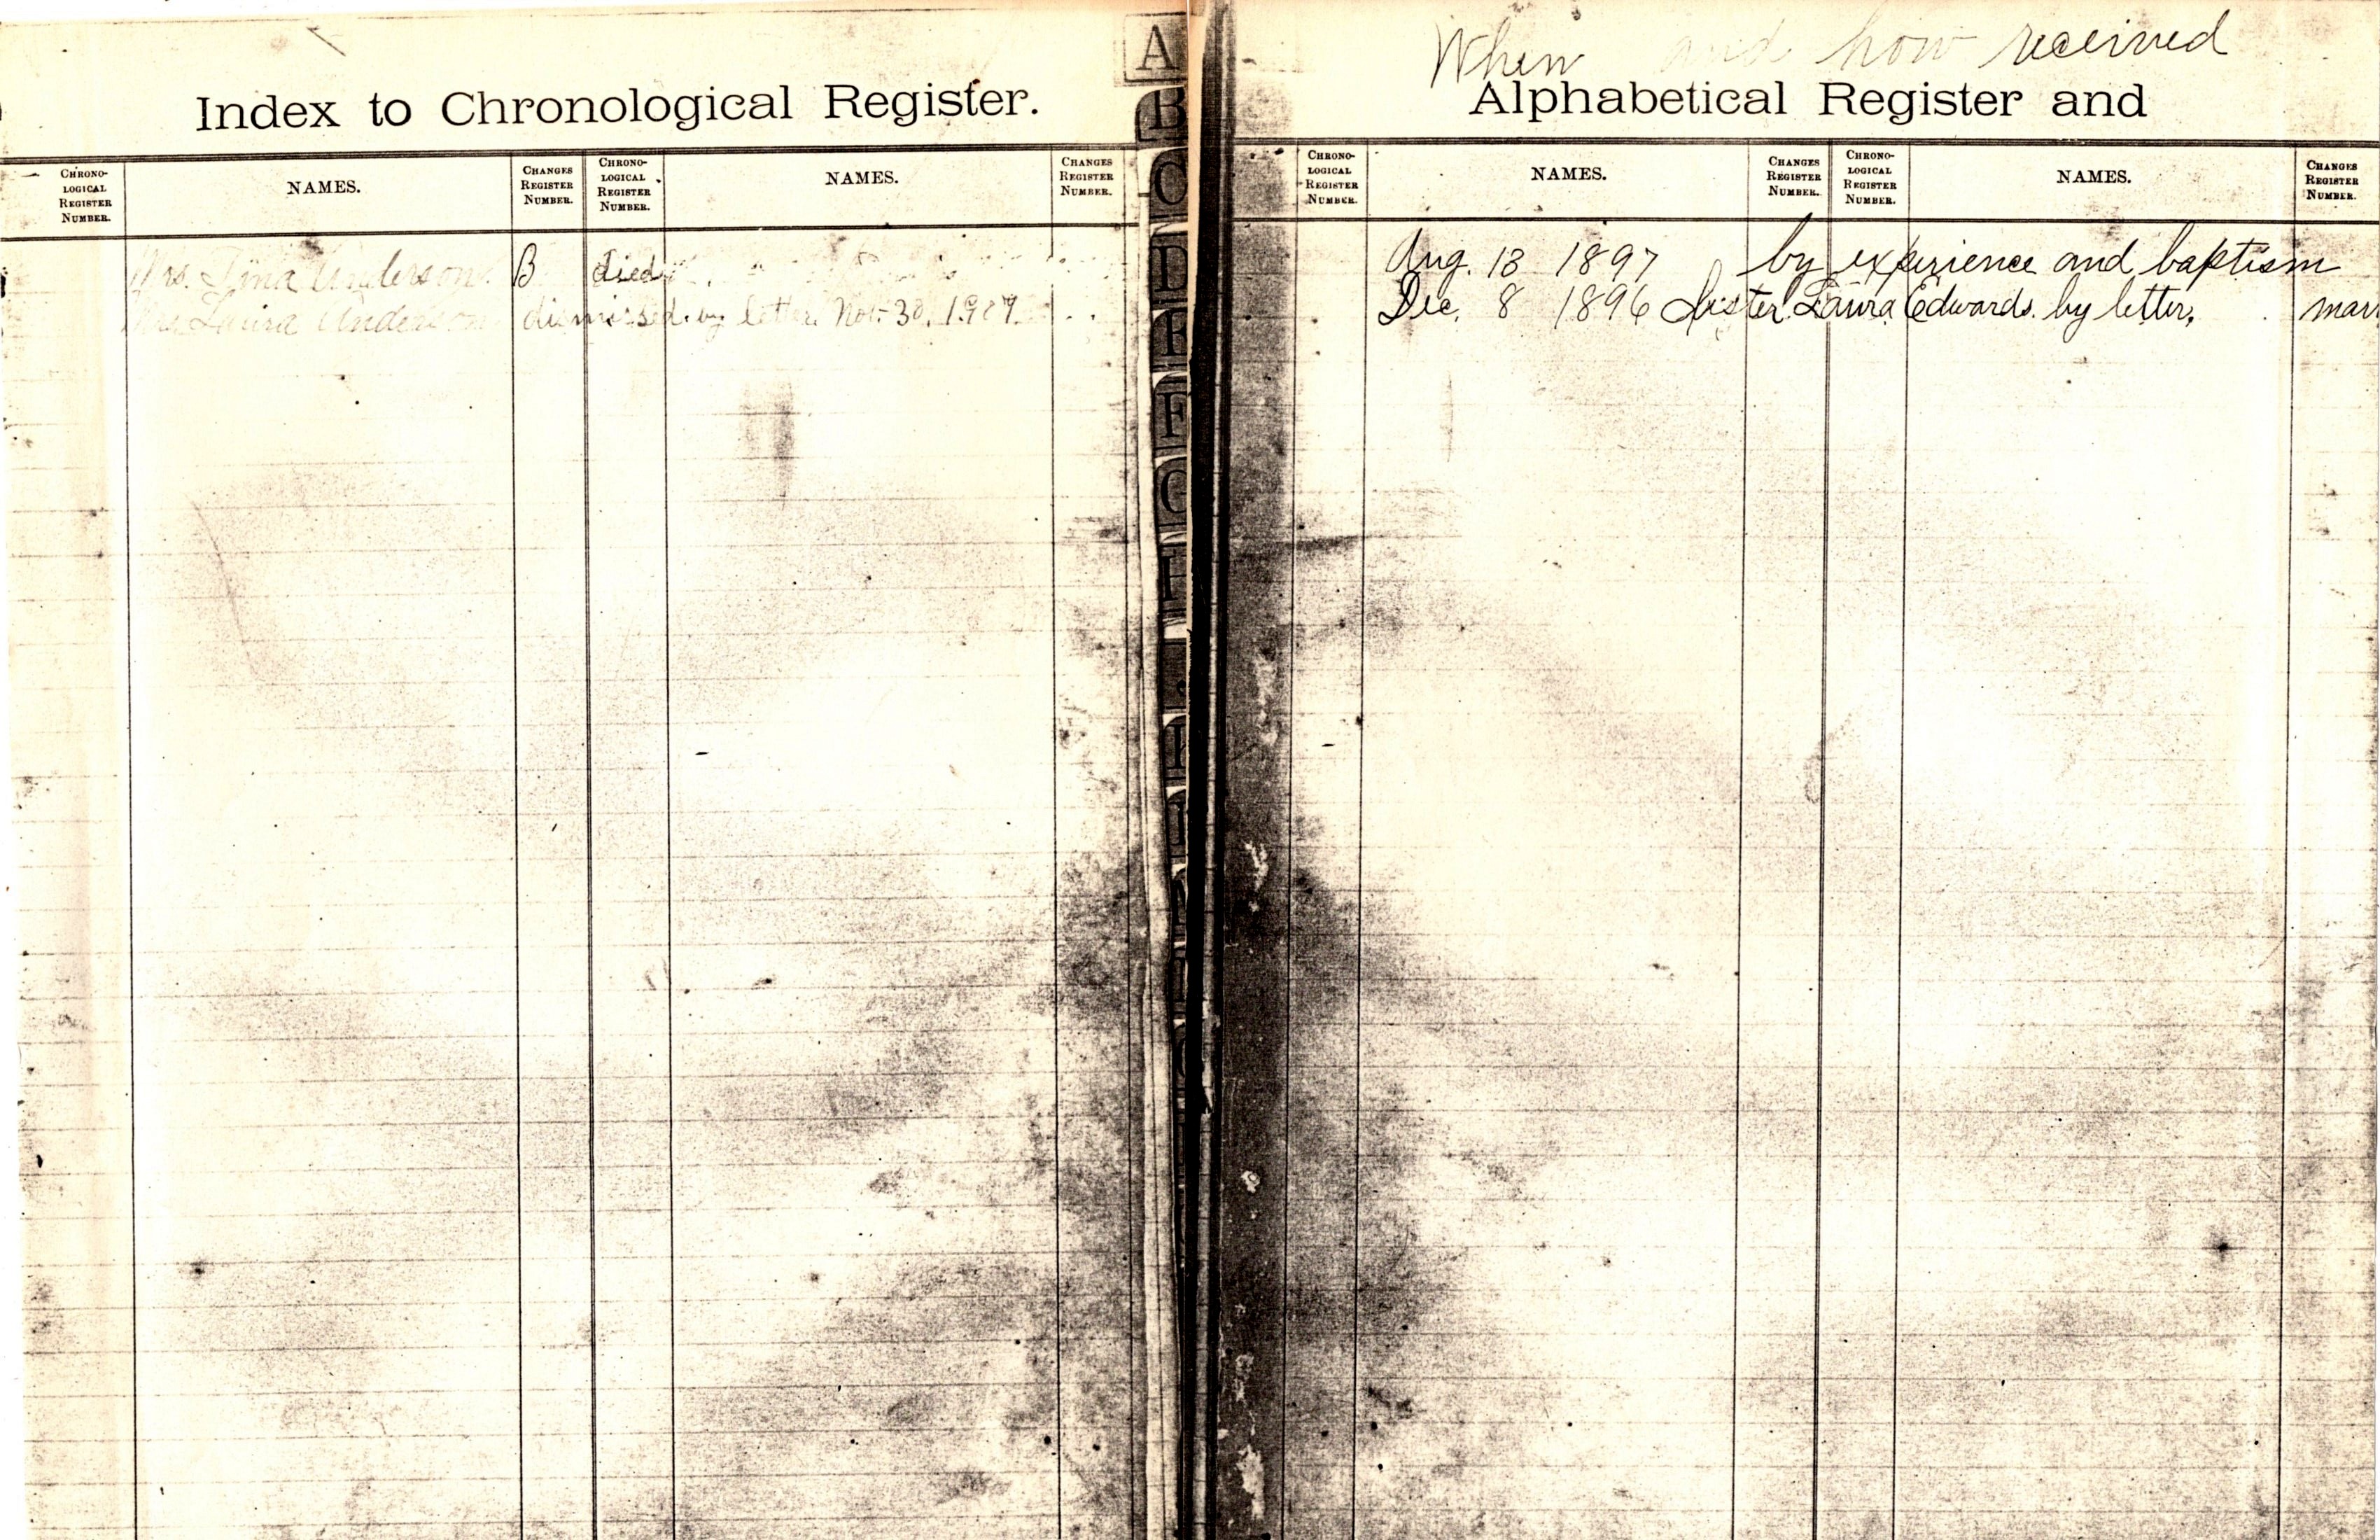 Index to Chronological Register.
CHRONO-
LOGICAL
REGISTER
NUMBER.
NAMES.
CHANGES
REGISTER
NUMBER.
CHRONO-
LOGICAL
REGISTER
NUMBER.
NAMES.
CHANGES
REGISTER
NUMBER.
Mrs. Tina Anderson. B died
Mrs Laura Anderson dismissed by letter Nov. 30, 1907
A
B
C
D
E
F
G
When and how received
Alphabetical Register and
CHRONO-
LOGICAL
REGISTER
NUMBER.
NAMES.
CHANGES
REGISTER
NUMBER.
CHRONO-
LOGICAL
REGISTER
NUMBER.
NAMES.
CHANGES
REGISTER
NUMBER.
Aug. 13 1897 by experience and baptism
Dec. 8 1896 Sister Laura Edwards. by letter,